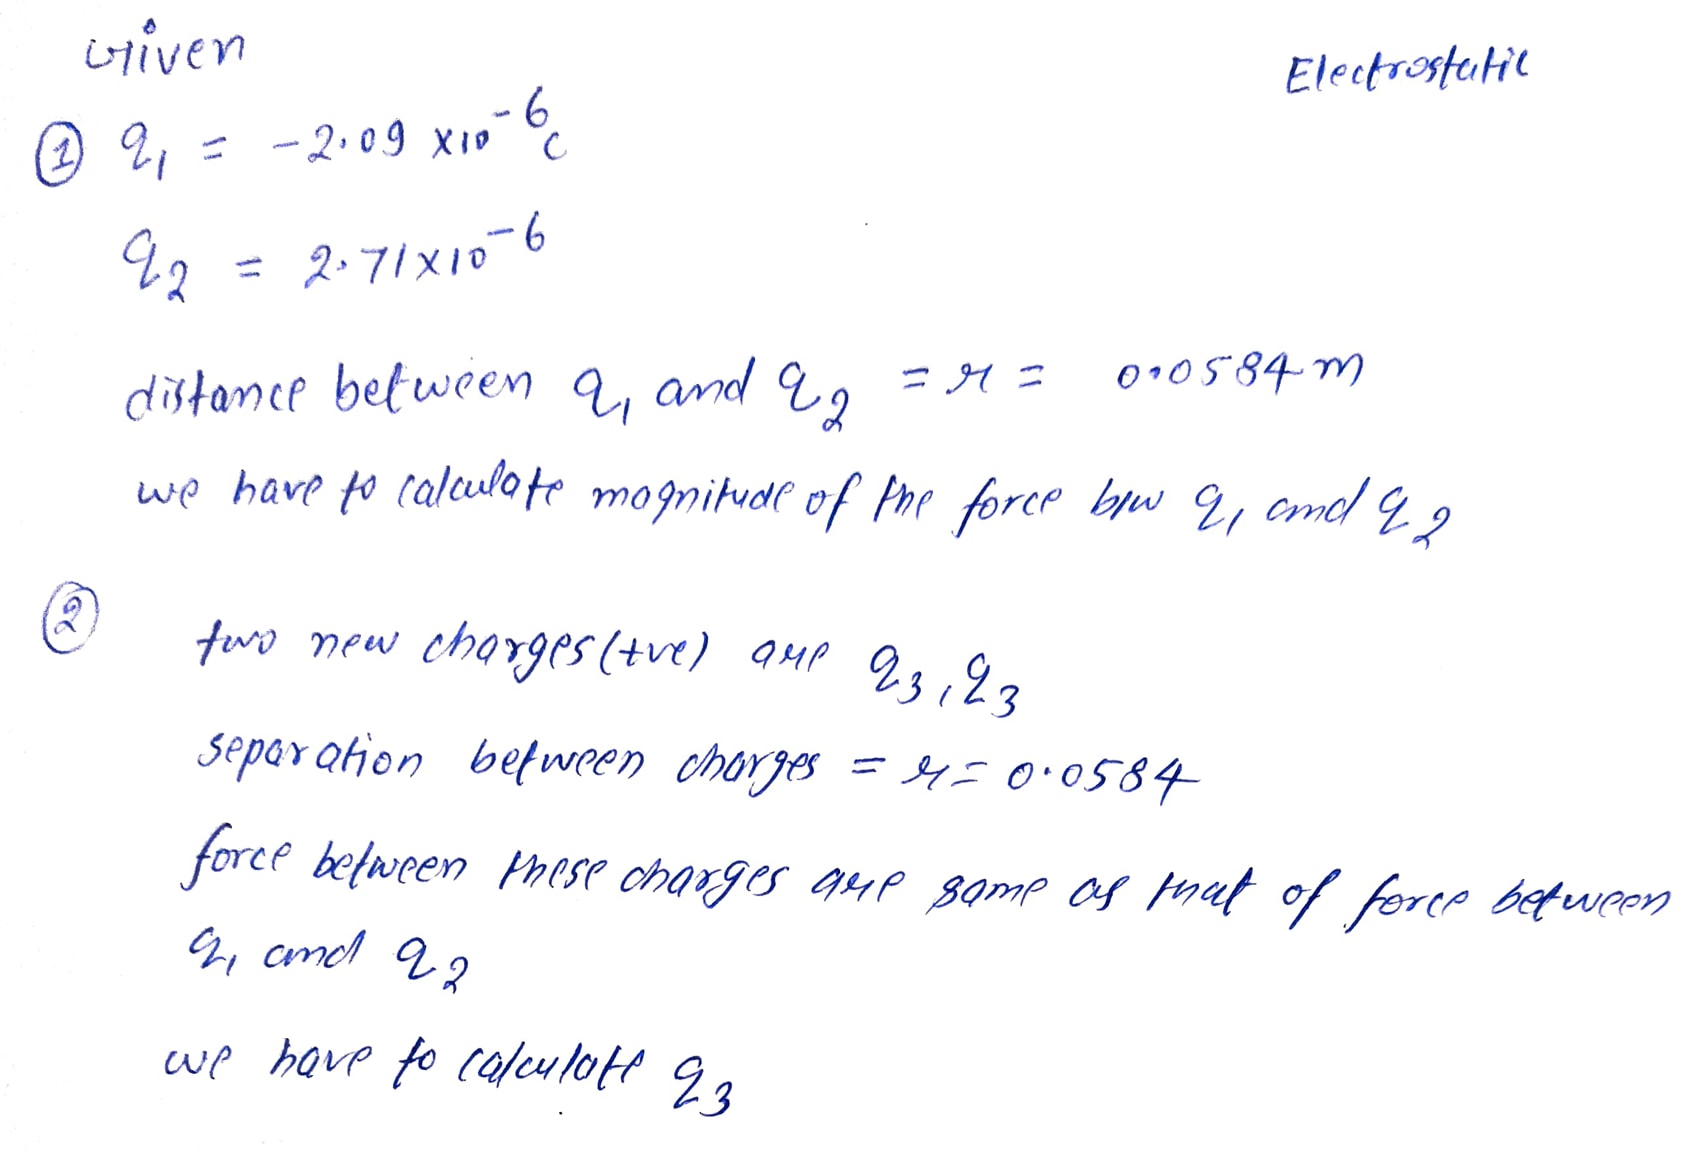 Given
Electrostatic
① q₁ = -2.09 x10⁻⁶c
q₂ = 2.71x10⁻⁶
distance between q₁ and q₂ = r = 0.0584m
we have to calculate magnitude of the force b/w q₁ and q₂
②
two new charges(+ve) are q₃, q₃
separation between charges = r = 0.0584
force between these charges are same as that of force between
q₁ and q₂
we have to calculate q₃